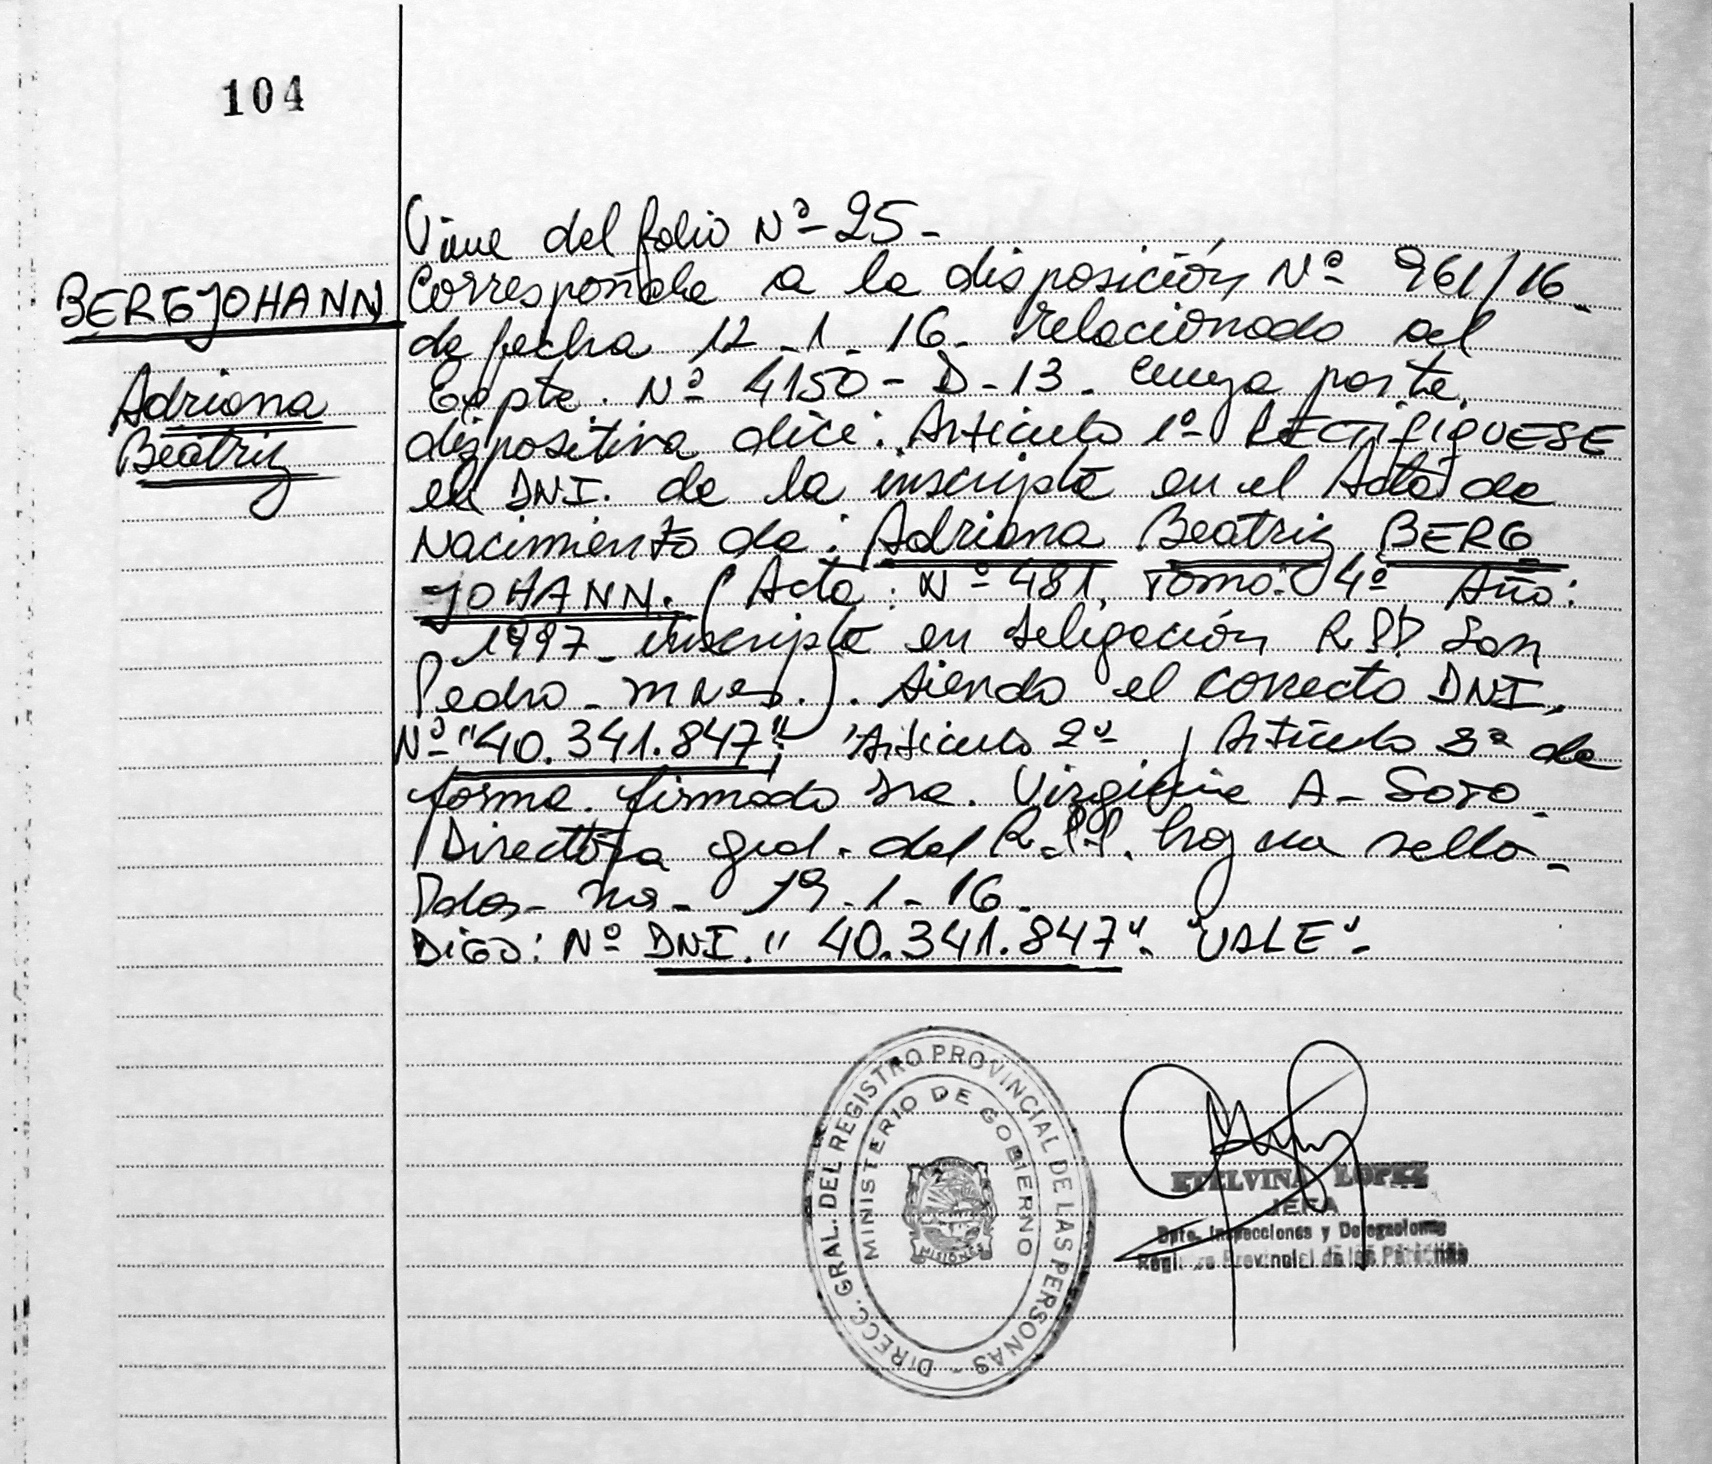 104
BERGJOHANN
Adriana
Beatriz
Viene del folio Nº 25-
Corresponde a la disposición Nº 961/16-
de fecha 12-1-16- relacionado al
Expte. Nº 4150-D-13- cuya parte
dispositiva dice: Articulo 1º RECTIFIQUESE
el DNI. de la inscripta en el Acta de
Nacimiento de: Adriana Beatriz BERG
JOHANN. (Acta: Nº 481, Tomo: 4º Año:
1997- inscripta en Delegación R.P.P. San
Pedro- Mnes.). Siendo el correcto DNI,
Nº "40.341.847"; Articulo 2º, Articulo 3º de
forma. firmado Dra. Virginia A- SOTO
Directora gral. del R.P.P. hay un sello-
Pdas- Ms- 19-1-16-
DIGO: Nº DNI. "40.341.847"- "VALE"-
DIRECC. GRAL. DEL REGISTRO PROVINCIAL DE LAS PERSONAS -
MINISTERIO DE GOBIERNO
MISIONES
ETELVINA LOPEZ
JEFA
Dpto. Inspecciones y Delegaciones
Registro Provincial de las Personas